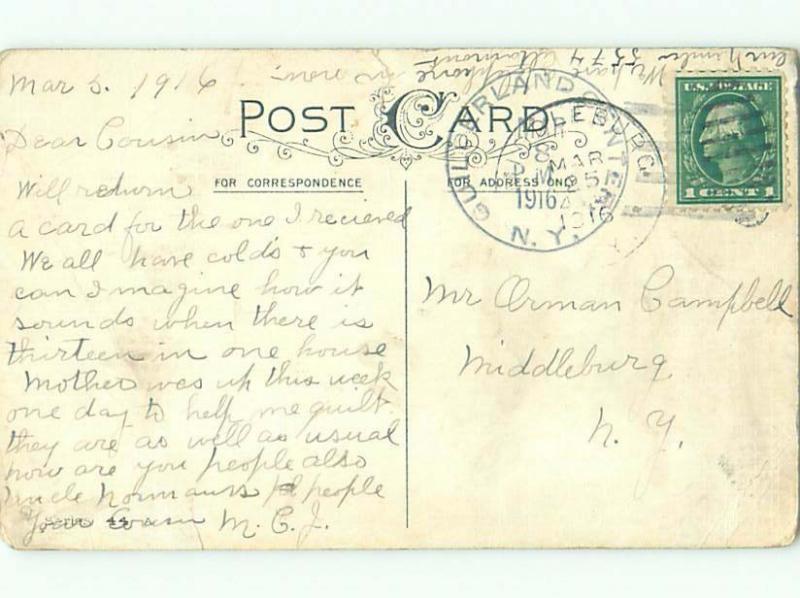 Mar 5. 1916
POST CARD
Dear Cousin
FOR CORRESPONDENCE
Will return
a card for the one I recieved
We all have colds & you
can I magine how it
sounds when there is
thirteen in one house
Mother was up this week
one day to help me quilt.
they are as well as usual
how are you people also
Uncle Normans people
Your Cousin M. C. J.
We have telephone
our number 5574 Altamont
FOR ADDRESS ONLY
GUILDERLAND CENTER
N. Y.
MAR
1916
U.S. POSTAGE
1 CENT 1
Mr Orman Campbell
Middleburg
N. Y.